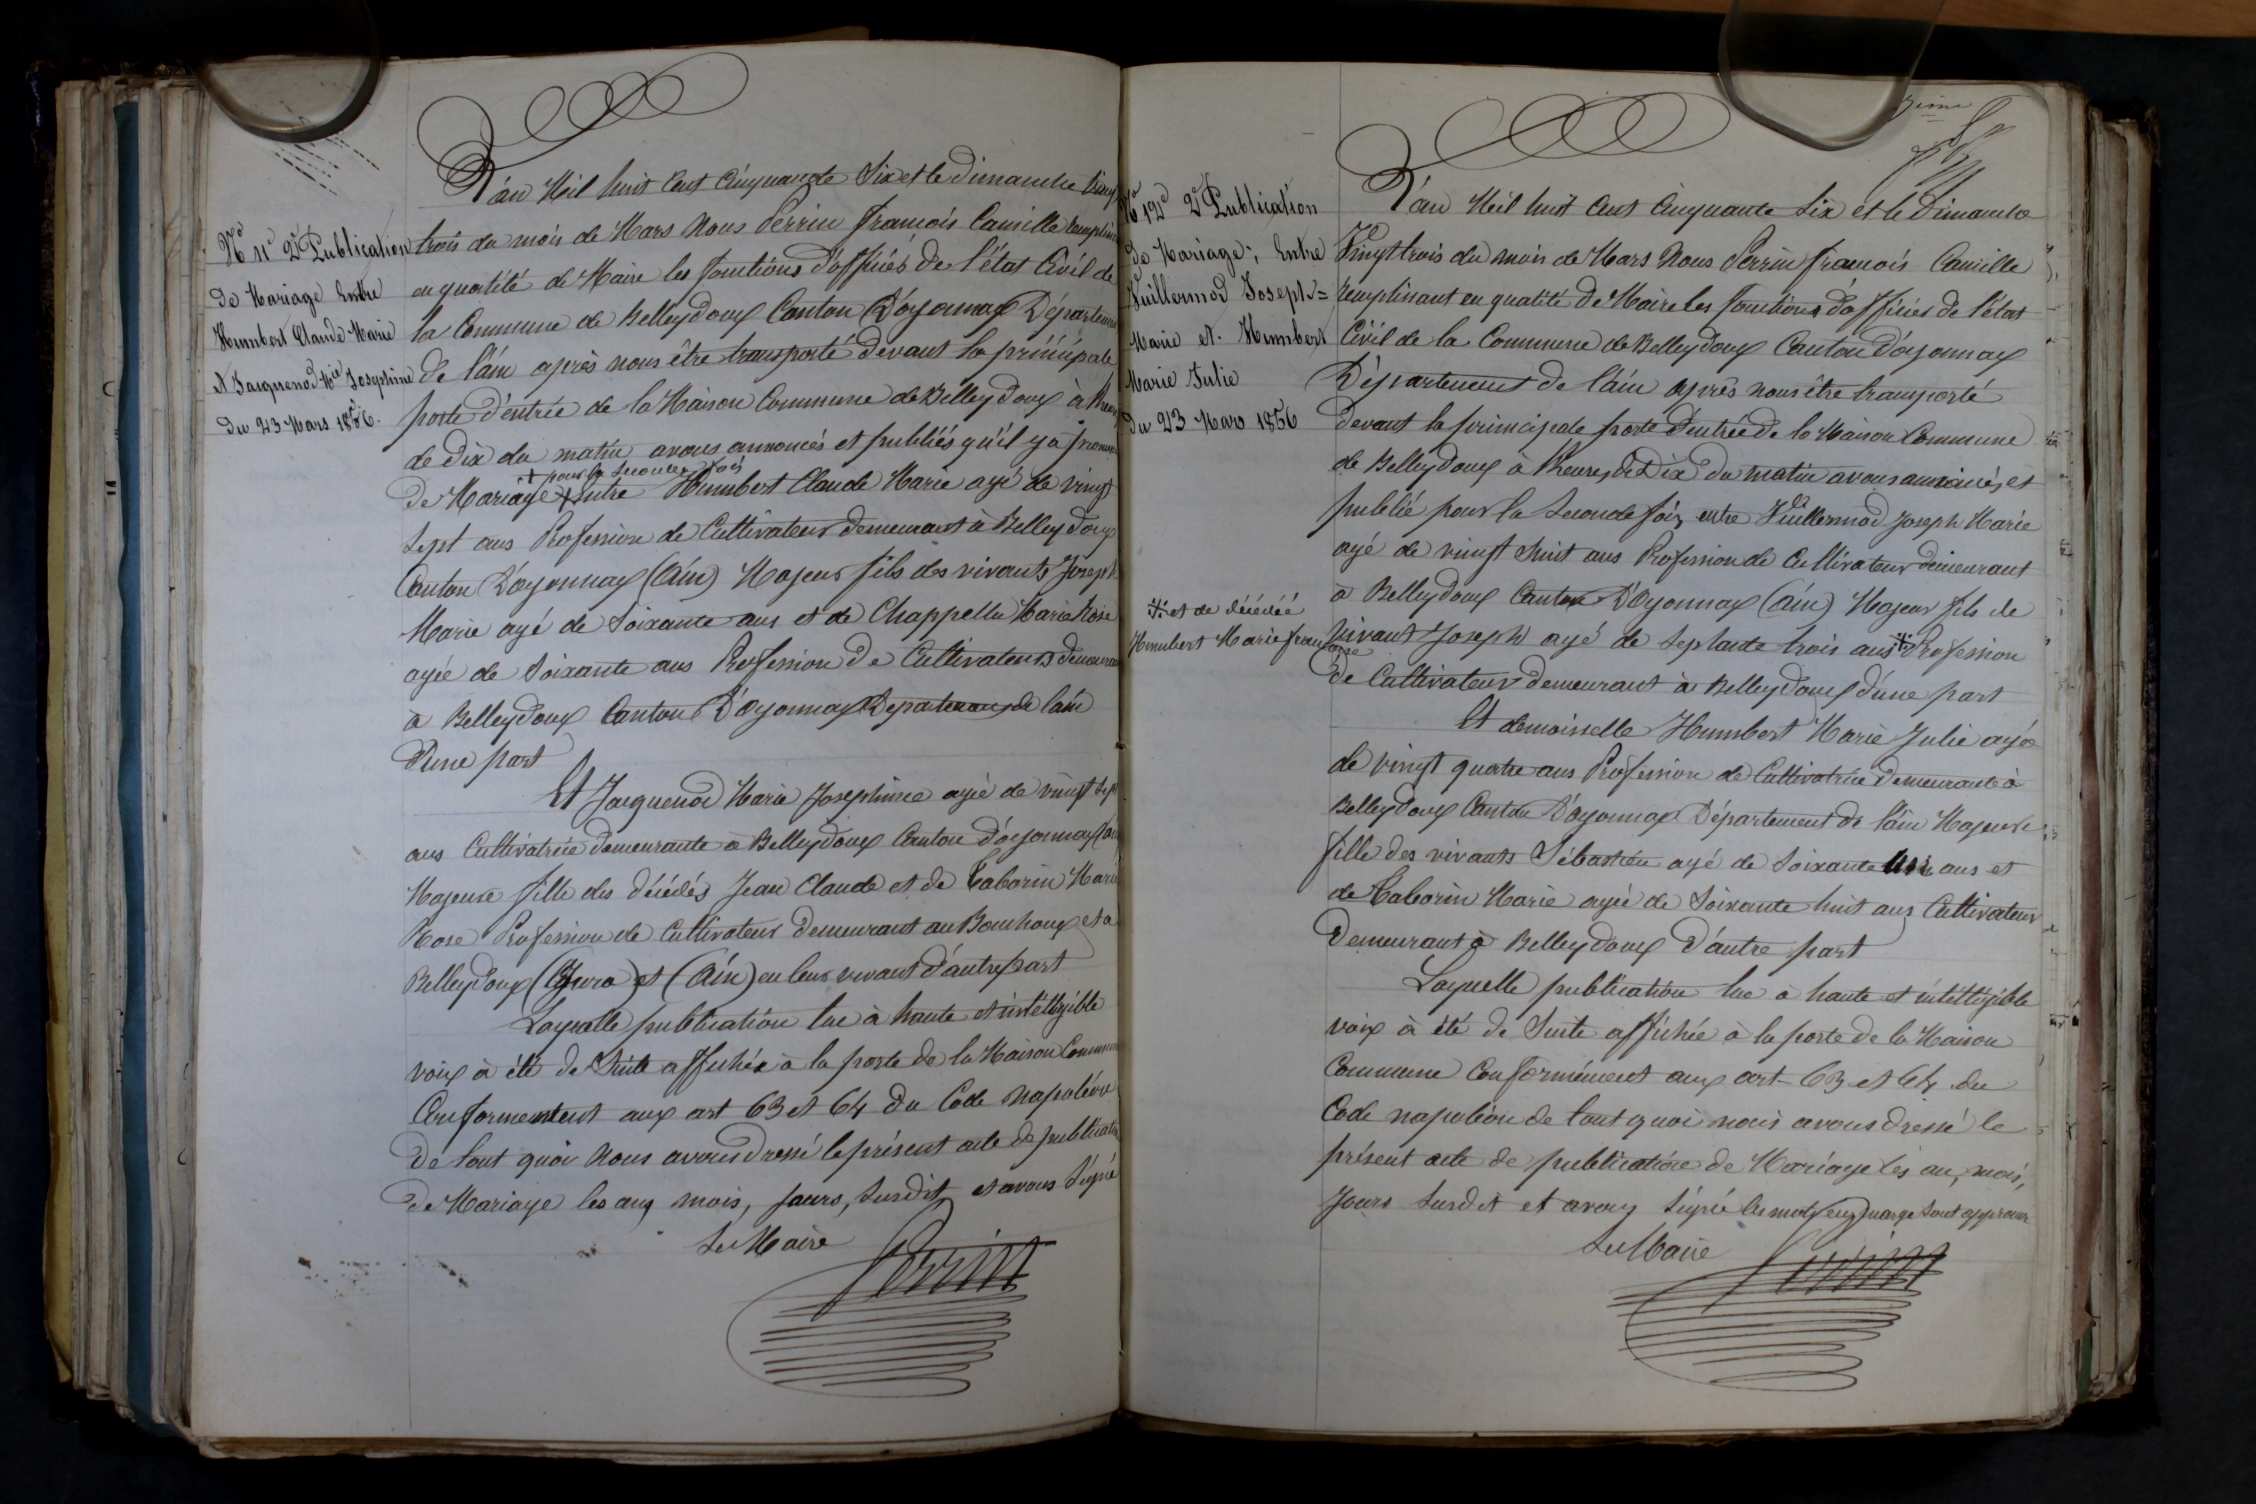 L'an Mil huit Cent Cinquante Six et le Dimanche Vingt
trois du mois de Mars Nous Perrin françois Camille remplissant
en qualité de Maire les fonctions d'officiés de l'état Civil de
la Commune de Belleydoux Canton D'oyonnax Département
de l'ain après nous être transporté devant la principale
porte d'entrée de la Maison Commune de Belleydoux à l'heure
de Dix du matin avons annoncés et publiés qu'il y a promesse
+ pour la seconde fois
de Mariage + entre Humbert Claude Marie agé de vingt
Sept ans Profession de Cultivateur demeurant à Belleydoux
Canton D'oyonnax (Ain) Majeur fils des vivants Joseph
Marie agé de Soixante ans et de Chappellu Marie Rose
agée de Soixante ans Profession De Cultivateurs demeurant
a Belleydoux Canton D'oyonnax Departement de l'ain
D'une part
Et Jacquenod Marie Josephinee agée de vingt Sept
ans Cultivatrice demeurante a Belleydoux Canton d'oyonnax (ain
Majeure fille des décédés Jean Claude et de Taborin Marie
Rose Profession de Cultivateur demeurant au Bouchoux et a
Belleydoux (Jura) et (Ain) en leur vivant d'autre part
Laquelle publication lue à haute et intélligible
voix à été de Suite affichée à la porte de la Maison Commune
Conformement aux art 63 et 64 du Code Napoléon
De tout quoi Nous avons dressé le présent acte de publication
de Mariage les an, mois, jours, Susdit et avons Signé
Le Maire
Perrin
N° 11° 2e Publication
de Mariage Entre
Humbert Claude Marie
et Jacquenod Mie Josephine
du 23 Mars 1856.
3eime
L'an Mil huit Cent Cinquante Six et le Dimanche
Vingt trois du mois de Mars Nous Perrin francois Camille
remplissant en qualité de Maire les fonctions d'officiés de l'état
Civil de la Commune de Belleydoux Canton d'oyonnax
Département de l'ain après nous être transporté
devant la principale porte d'entrée de la Maison Commune
de Belleydoux à l'heure de Dix du matin avons annoncé, et
publié pour la Seconde fois, entre Vuillermod Joseph Marie
agé de vingt huit ans Profession de Cultivateur demeurant
à Belleydoux Canton D'Oyonnax (Ain) Majeur fils de
vivant Joseph agé de Septante trois ans Profession
de Cultivateur demeurant à Belleydoux d'une part
Et demoisselle Humbert Marie Julie agée
de vingt quatre ans Profession de Cultivatrice Demeurante à
Belleydoux Canton D'oyonnax Département de l'ain Majeure
fille des vivants Sébastien agé de Soixante ans et
de Taborin Marie agée de Soixante huit ans Cultivateur
Demeurant à Belleydoux D'autre part
Laquelle publication lue à haute et intélligible
voix à été de Suite affichée à la porte de la Maison
Commune Conformément aux art 63 et 64 du
Code napoléon de tout quoi nous avons dressé le
présent acte de publication de Mariage les an, mois,
Jours Susdit et avons Signé les mots en marge sont approuvés
Le Maire
Perrin
N° 12e 2e Publication
de Mariage; Entre
Vuillermod Joseph=
Marie et Humbert
Marie Julie
du 23 Mars 1856
et de décédée
Humbert Marie françoise